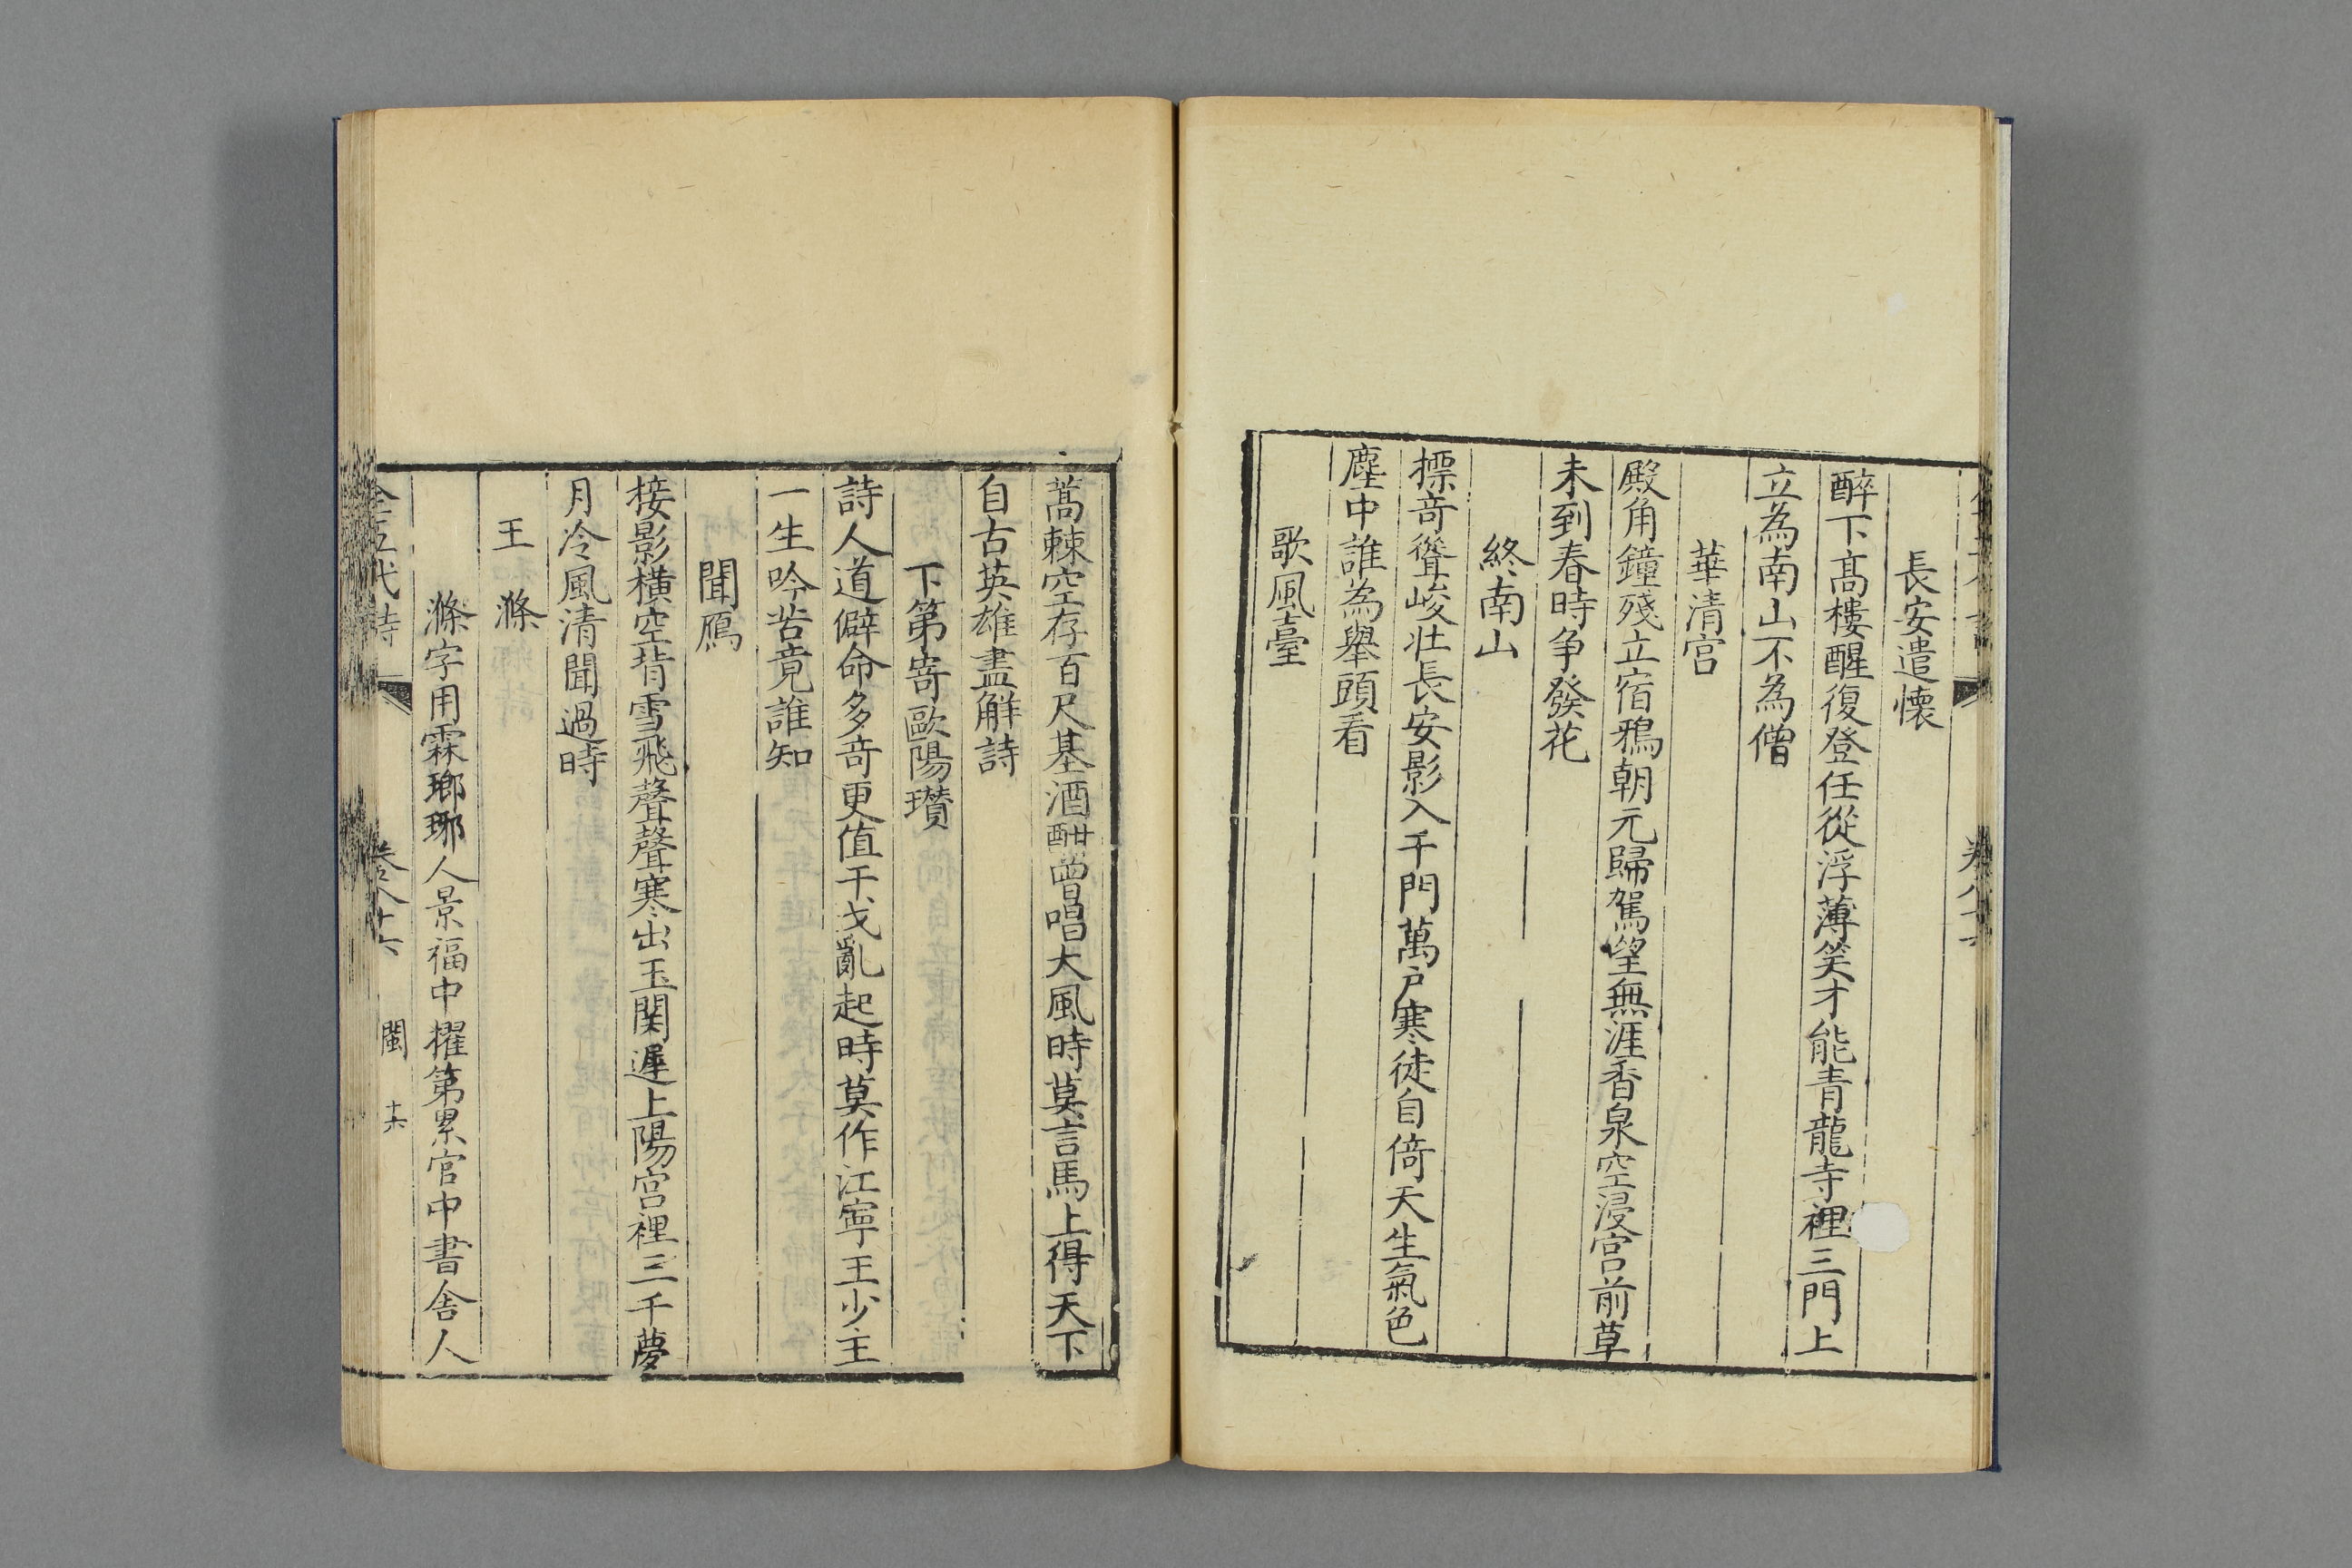 長安遣懷
醉下髙樓醒復登任從浮薄笑才能青龍寺裡三門上
立為南山不為僧
華清宫
殿角鐘殘立宿鴉朝元歸駕望無涯香泉空浸宫前草
未到春時争發花
終南山
摽竒聳峻壯長安影入千門萬户寒徒自倚天生氣色
塵中誰為舉頭看
歌風臺
蒿棘空存百尺基酒酣曽唱大風時莫言馬上得天下
自古英雄盡解詩
下第寄歐陽瓚
詩人道僻命多竒更值干戈亂起時莫作江寧王少主
一生吟苦竟誰知
聞鴈
接影橫空背雪飛聲聲寒出玉関遲上陽宫裡三千夢
月冷風清聞過時
王滌
滌字用霖瑯琊人景福中擢第累官中書舍人
全五代詩 卷八十六 閩 十六